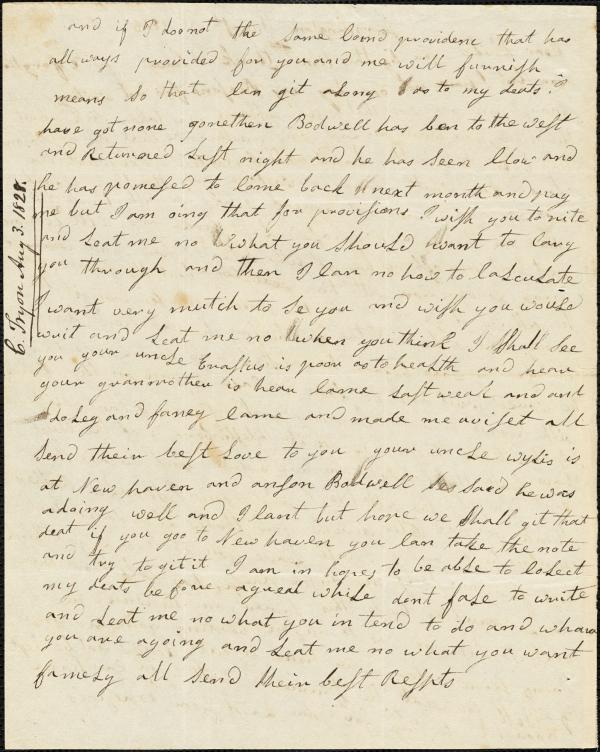 and if I doo not the same bound providenc that has
all ways provided for you and me will furnish
means so that I can git along as to my deats I
have got none gone then Bodwell has ben to the west
and Returned Last night and he has seen Clow and
he has promesed to Come back next month and pay
me but I am oing that for provisions I wish you to rite
and Leat me no what you Should want to Cary
you through and then I Can no how to Calsculate
I want very mutch to Se you and wish you would
writ and Leat me no when you think I Shall See
you your uncle Erastus is poor as to health and hear
your granmother is hear Came Last weak and ant
Dolsey and faney Came and made me a viset all
Send their best Love to you your uncle wylis is
at New haven and anson Bodwell ses said he was
adoing well and I Cant but hope we Shall git that
deat if you goo to New haven you Can take the note
and try to git it I am in hopes to be able to Colect
my deats before agreat while dont fale to write
and Leat me no what you in tend to do and whare
you are agoing and Leat me no what you want
famely all Send their best Respts
C. Tryon Aug 3. 1828.